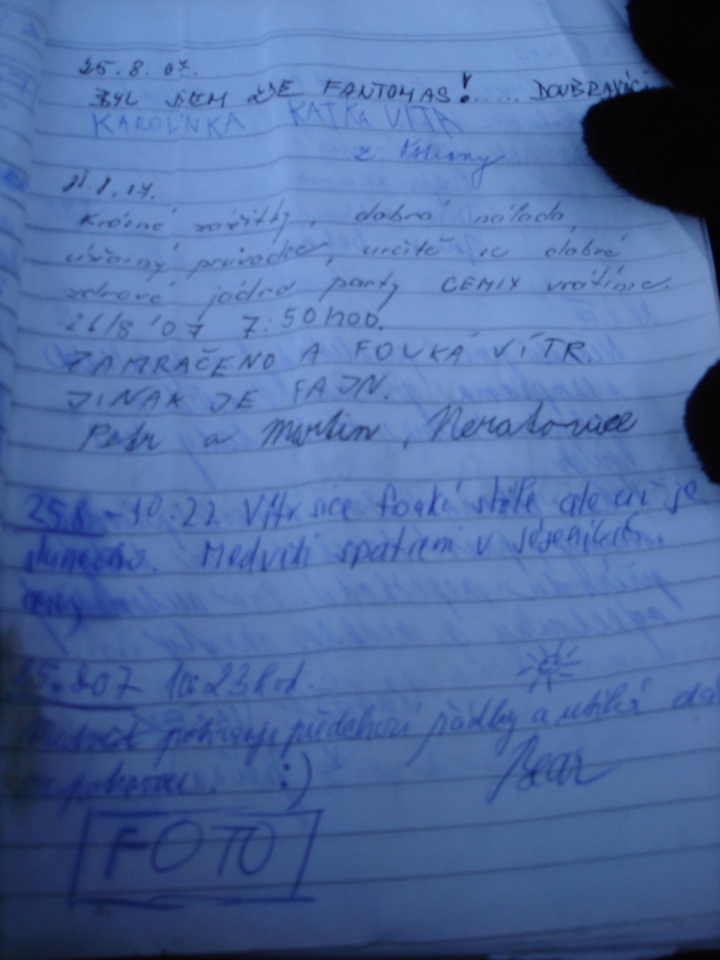 25.8.07.
BYL JSEM ZDE FANTOMAS!..... DOUBRAVÁCI
KAROLÍNKA KATKA VÍŤA
z
Krásné zážitky, dobrá nálada,
úžasný průvodce, určitě se dobré
zdravé jádro party CEMIX vrátíme.
26/8 '07 7:50 HOD.
ZAMRAČENO A FOUKÁ VÍTR.
JINAK JE FAJN.
Petr a Martin, Neratovice
25.8 - 10:22 Vítr sice fouká stále ale je
slunečno. Medvědi spatřeni v Jeseníkách.
25.807 10:23hod.
předchozí řádky a utíká
:) Bear
FOTO